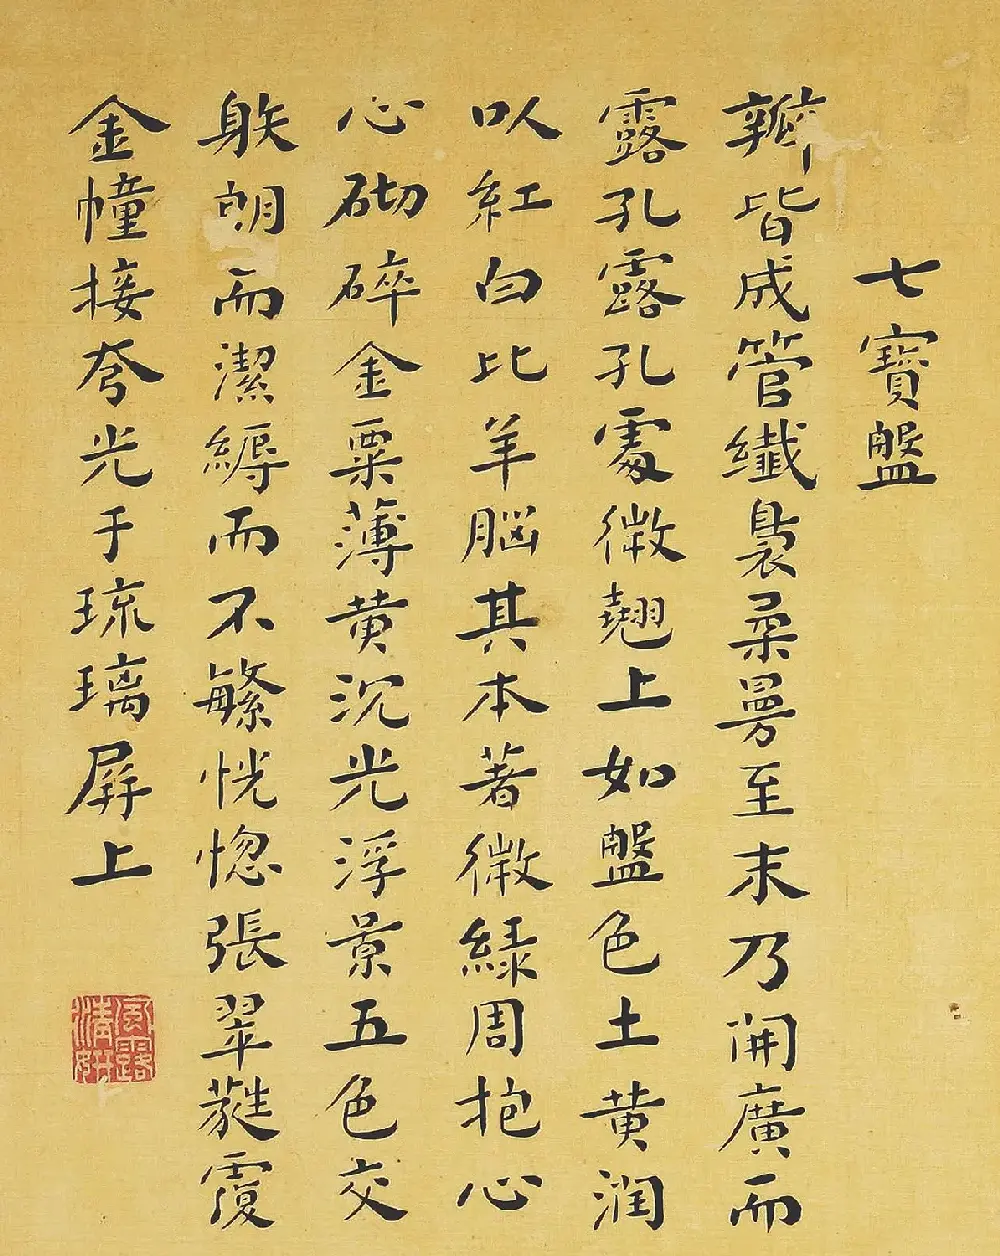 七寶盤
瓣皆成管纖裊柔曼至末乃開廣而
露孔露孔處微翹上如盤色土黄润
以紅白比羊腦其本著微綠周抱心
心砌碎金粟薄黄沉光浮景五色交
朗而潔縟而不繁恍惚張翠蕤覆
金幢接夸光于琉璃屏上